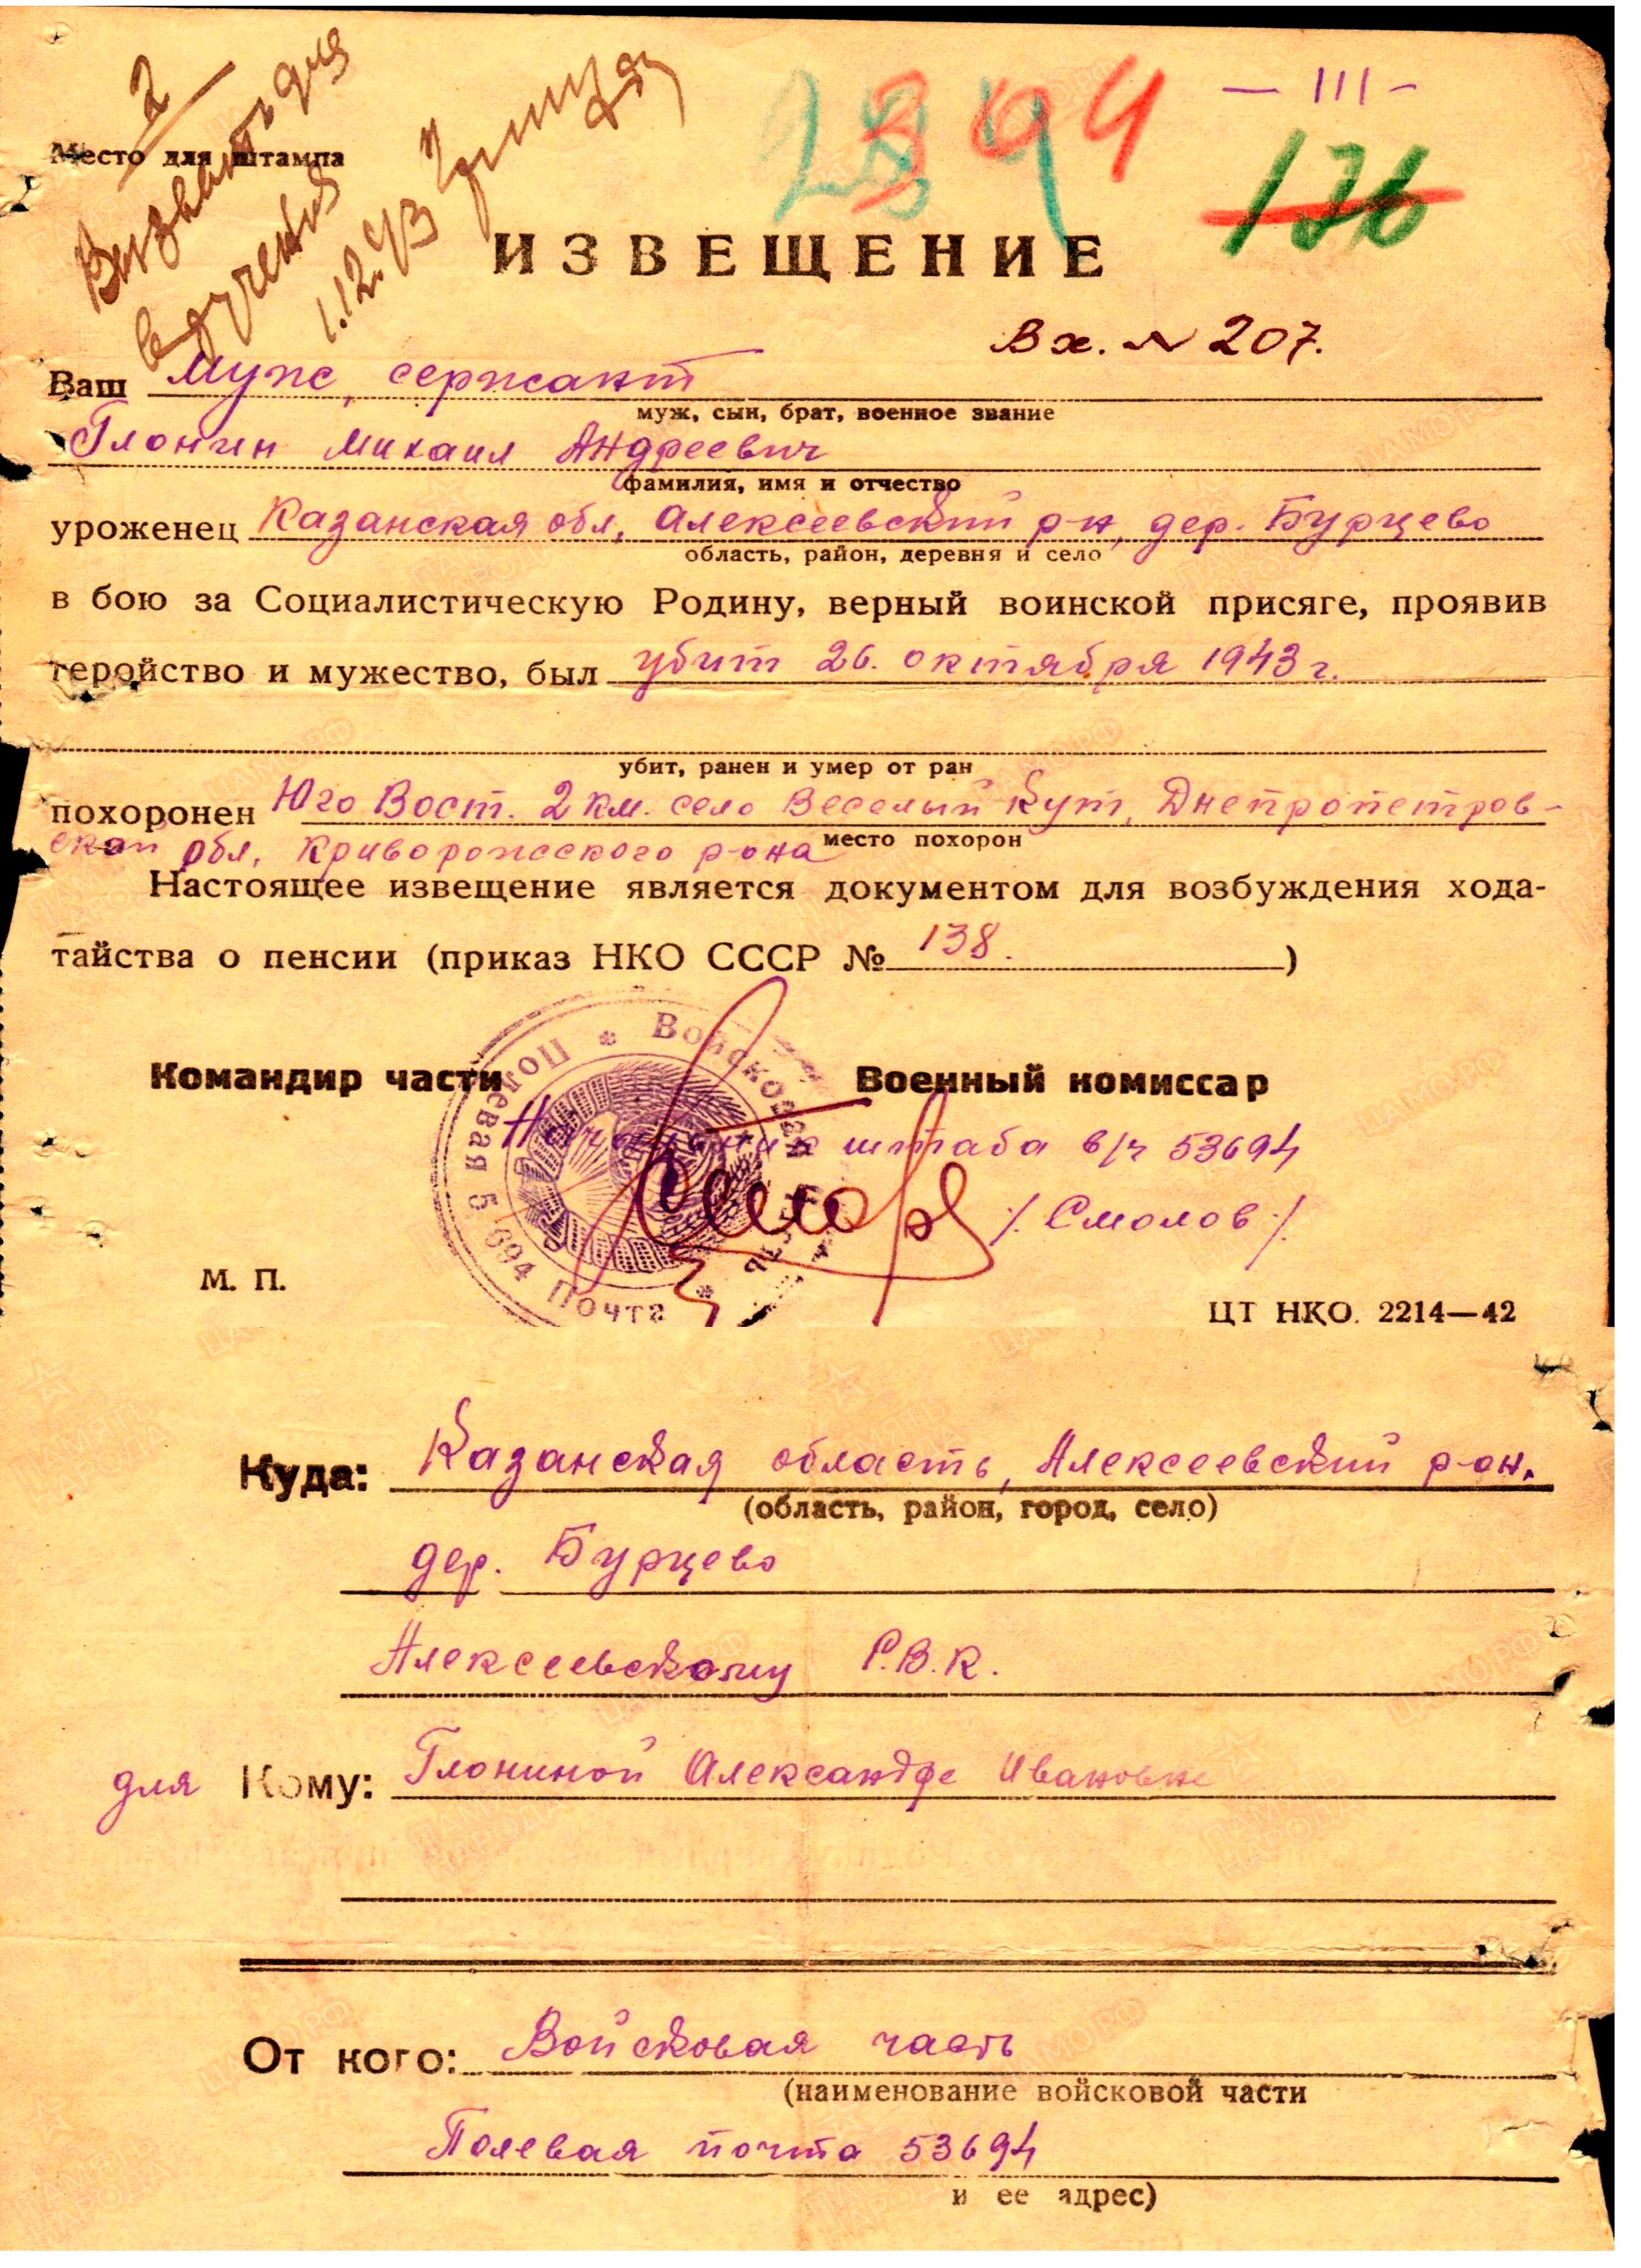 2
Вызвать для
вручения
1.12.43
2894
- 111 -
176
Место для штампа
ИЗВЕЩЕНИЕ
Вх. № 207.
Ваш муж, сержант
муж, сын, брат, военное звание
Глонин Михаил Андреевич
фамилия, имя и отчество
уроженец Казанская обл, Алексеевский р-н, дер. Бурцево
область, район, деревня и село
в бою за Социалистическую Родину, верный воинской присяге, проявив
геройство и мужество, был убит 26. октября 1943 г.
убит, ранен и умер от ран
похоронен Юго Вост. 2 км. село Веселый Кут, Днепропетров-
ской обл, Криворожского р-она
место похорон
Настоящее извещение является документом для возбуждения хода-
тайства о пенсии (приказ НКО СССР № 138. )
Командир части Военный комиссар
Начальник штаба в/ч 53694
/ Смолов /
Войсковая часть * Полевая 5 694 Почта *
М. П.
ЦТ НКО. 2214—42
Куда: Казанская область, Алексеевский р-он.
(область, район, город, село)
дер. Бурцево
Алексеевскому Р.В.К.
для Кому: Глониной Александре Ивановне
От кого: Войсковая часть
(наименование войсковой части
Полевая почта 53694
и ее адрес)